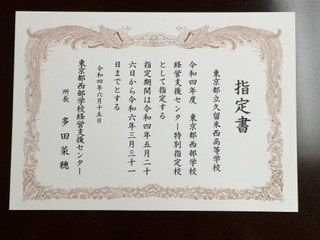 指定書
東京都立久留米西高等学校
令和四年度 東京都西部学校
経営支援センター特別指定校
として指定する
指定期間は令和四年五月二十
六日から令和六年三月三十一
日までとする
令和四年六月十五日
東京都西部学校経営支援センター
所長 多田菜穂